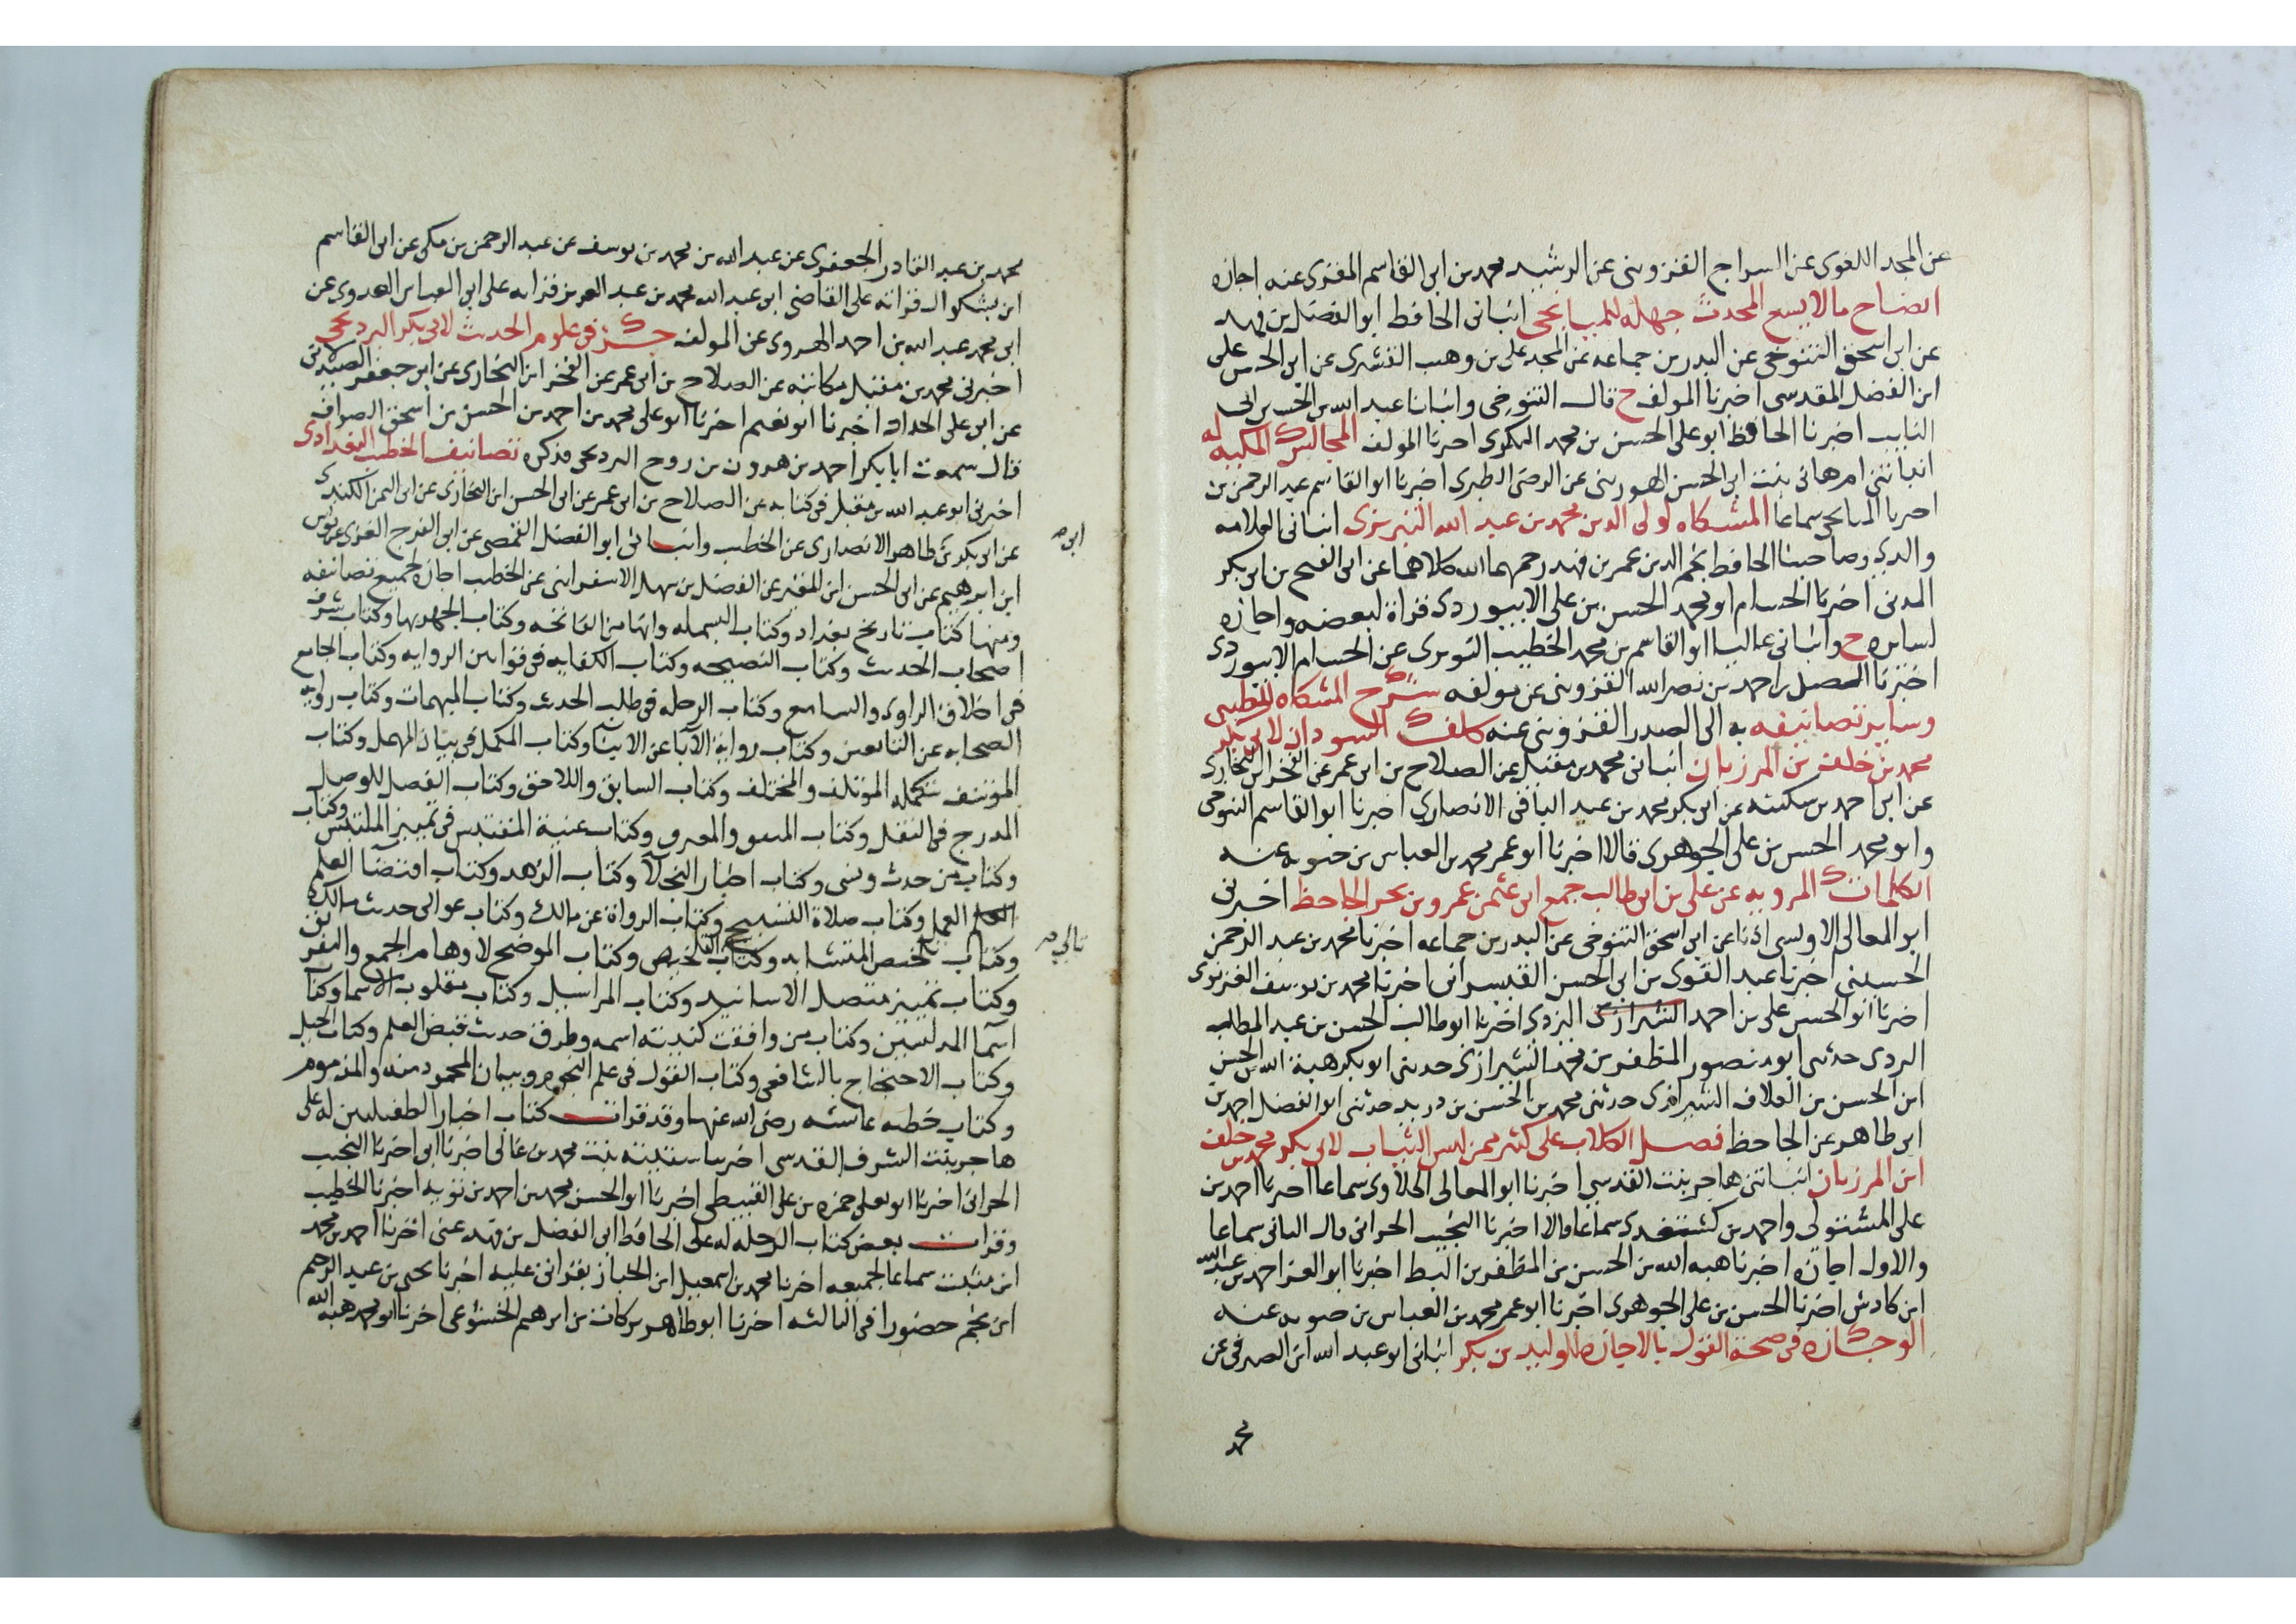 عن المجد اللغوى عن السراج القزوينى عن الرشيد محمد بن ابى القاسم المقرى عنه اجازه
ايضاح مالا يسع المحدث جهله للميانجى انبانى الحافظ ابو الفضل بن فهد
عن ابى اسحق التنوخى عن البدر بن جماعه عن المجد على بن وهب القشيرى عن ابى الحسن على
ابن الفضل المقدسى اخبرنا المولف ح قال التنوخى وانبانا عبد الله بن الحسين بن ابى
التايب اخبرنا الحافظ ابو على الحسن بن محمد البكرى اخبرنا المولف المجالس المكيه له
انباتنى ام هانى بنت ابى الحسن الهورينى عن الرضى الطبرى اخبرنا ابو القاسم عبد الرحمن بن
اخبرنا الميانجى سماعا المشكاه لولى الدين محمد بن عبد الله التبريزى انبانى العلامه
والدى وصاحبنا الحافظ نجم الدين عمر بن فهد رحمهما الله كلاهما عن ابى الفتح بن ابى بكر
المدنى اخبرنا الحسام ابو محمد الحسن بن على الابيوردى قراة لبعضه واجازه
لسايره ح وانبانى عاليا ابو القاسم بن محمد الخطيب النويرى عن الحسام الابيوردى
اخبرنا احمد بن نصر الله القزوينى عن مولفه شرح المشكاه للطيبى
وساير تصانيفه به الى الصدر القزوينى عنه السودان لابى بكر
محمد بن خلف بن المرزبان انبانى محمد بن مقبل عن الصلاح بن ابى عمر عن الفخر ابن البخارى
عن ابى احمد بن سكينه عن ابى بكر محمد بن عبد الباقى الانصارى اخبرنا ابو القاسم التنوخى
وابو محمد الحسن بن على الجوهرى قالا اخبرنا ابو عمر محمد بن العباس بن حيويه عنه
الكلمات المرويه عن على بن ابى طالب جمع ابى عثمن عمرو بن بحر الجاحظ اخبرنى
ابو المعالى الاويسى اذنا عن ابى اسحق التنوخى عن البدر بن جماعه اخبرنا محمد بن عبد الرحمن
الحسينى اخبرنا عبد القوى بن ابى الحسن القيسرانى اخبرنا محمد بن يوسف الغزنوى
اخبرنا ابو الحسن على بن احمد اليزدى اخبرنا ابو طالب الحسن بن عبد المطلب
اليزدى حدثنى ابو منصور المظفر بن محمد الشيرازى حدثنى ابو بكر هبة الله بن الحسن
ابن الحسن بن العلاف الشيرازى حدثنى محمد بن الحسن بن دريد حدثنى ابو الفضل احمد بن
ابى طاهر عن الجاحظ فصل الكلاب على كثير ممن لبس الثياب لابى بكر محمد بن خلف
ابن المرزبان انباتنى هاجر بنت القدسى اخبرنا ابو المعالى الحلاوى سماعا اخبرنا احمد بن
على المشتولى واحمد بن كشتغدى سماعا قالا اخبرنا النجيب الحرانى قال الثانى سماعا
والاول اجازه اخبرنا هبه الله بن الحسن بن المظفر بن السبط اخبرنا ابو العز احمد بن عبيد الله
ابن كادش اخبرنا الحسن بن على الجوهرى اخبرنا ابو عمر محمد بن العباس بن حيويه عنه
الوجازه فى صحة القول بالاجازه للوليد بن بكر انبانى ابو عبد الله ابن الصيرفى عن
محمد
محمد بن عبد القادر الجعفرى عن عبد الله بن محمد بن يوسف عن عبد الرحمن بن مكى عن ابى القاسم
ابن بشكوال قراته على القاضى ابى عبد الله محمد بن عبد العزيز قراته على ابى العباس العذرى عن
ابى محمد عبد الله بن احمد الهروى عن المولف جزء فى علوم الحديث لابى بكر البرديجى
اخبرنى محمد بن مقبل مكاتبه عن الصلاح بن ابى عمر عن الفخر ابن البخارى عن ابى جعفر الصيدلانى
عن ابى على الحداد اخبرنا ابو نعيم اخبرنا ابو على محمد بن احمد بن الحسن بن اسحق الصواف
قال سمعت ابا بكر احمد بن هرون بن روح البرديجى فذكره تصانيف الخطيب البغدادى
اخبرنى ابو عبد الله بن مقبل فى كتابه عن الصلاح بن ابى عمر عن ابى الحسن ابن البخارى عن ابى اليمن الكندى
عن ابى بكر بن طاهر الانصارى عن الخطيب وانبانى ابو الفضل القمصى عن ابى الفرج الغزى عن يونس
ابن ابرهيم عن ابى الحسن ابن المقير عن الفضل بن سهل الاسفراينى عن الخطيب اجازه لجميع تصانيفه
ومنها كتاب تاريخ بغداد وكتاب البسمله وانها من الفاتحه وكتاب الجهر بها وكتاب شرف
اصحاب الحديث وكتاب النصيحه وكتاب الكفايه فى قوانين الروايه وكتاب الجامع
فى اخلاق الراوى والسامع وكتاب الرحله فى طلب الحديث وكتاب المبهمات وكتاب روايه
الصحابه عن التابعين وكتاب رواية الآبا عن الابناء وكتاب المكمل فى بيان المهمل وكتاب
المؤتنف تكمله المؤتلف والمختلف وكتاب السابق واللاحق وكتاب الفصل للوصل
المدرج فى النقل وكتاب المتفق والمفترق وكتاب غنية المقتبس فى تمييز الملتبس وكتاب
وكتاب من حدث ونسى وكتاب البخلآ وكتاب الزهد وكتاب اقتضا العلم
العمل وكتاب صلاة التسبيح وكتاب الرواة عن مالك وكتاب عوالى حديث مالك
وكتاب تلخيص المتشابه وكتاب التلخيص وكتاب الموضح لاوهام الجمع والتفريق
وكتاب تمييز متصل الاسانيد وكتاب المراسيل وكتاب مقلوب الاسما وكتاب
اسمآ المدلسين وكتاب من وافقت كنيته اسمه وطرق حديث قبض العلم وكتاب الحيل
وكتاب الاحتجاج بالشافعى وكتاب القول فى علم النجوم وبيان المحمود منه والمذموم
وكتاب خطبه عائشه رضى الله عنها وقد قرات كتاب اخبار الطفيليين له على
هاجر بنت الشرف القدسى اخبرنا محمد بن غالى اخبرنا ابى اخبرنا النجيب
الحرانى اخبرنا ابو يعلى حمزه بن على القبيطى اخبرنا ابو الحسن محمد بن احمد بن توبه اخبرنا الخطيب
وقرات بعض كتاب الرحله له على الحافظ ابى الفضل بن فهد عنى اخبرنا احمد بن محمد
ابن مثبت سماعا لجميعه اخبرنا محمد بن اسمعيل ابن الخباز بقراتى عليه اخبرنا يحيى بن عبد الرحيم
ابن نجم حضورا فى الثالثه اخبرنا ابو طاهر بركات بن ابرهيم الخشوعى اخبرنا ابو محمد هبه الله